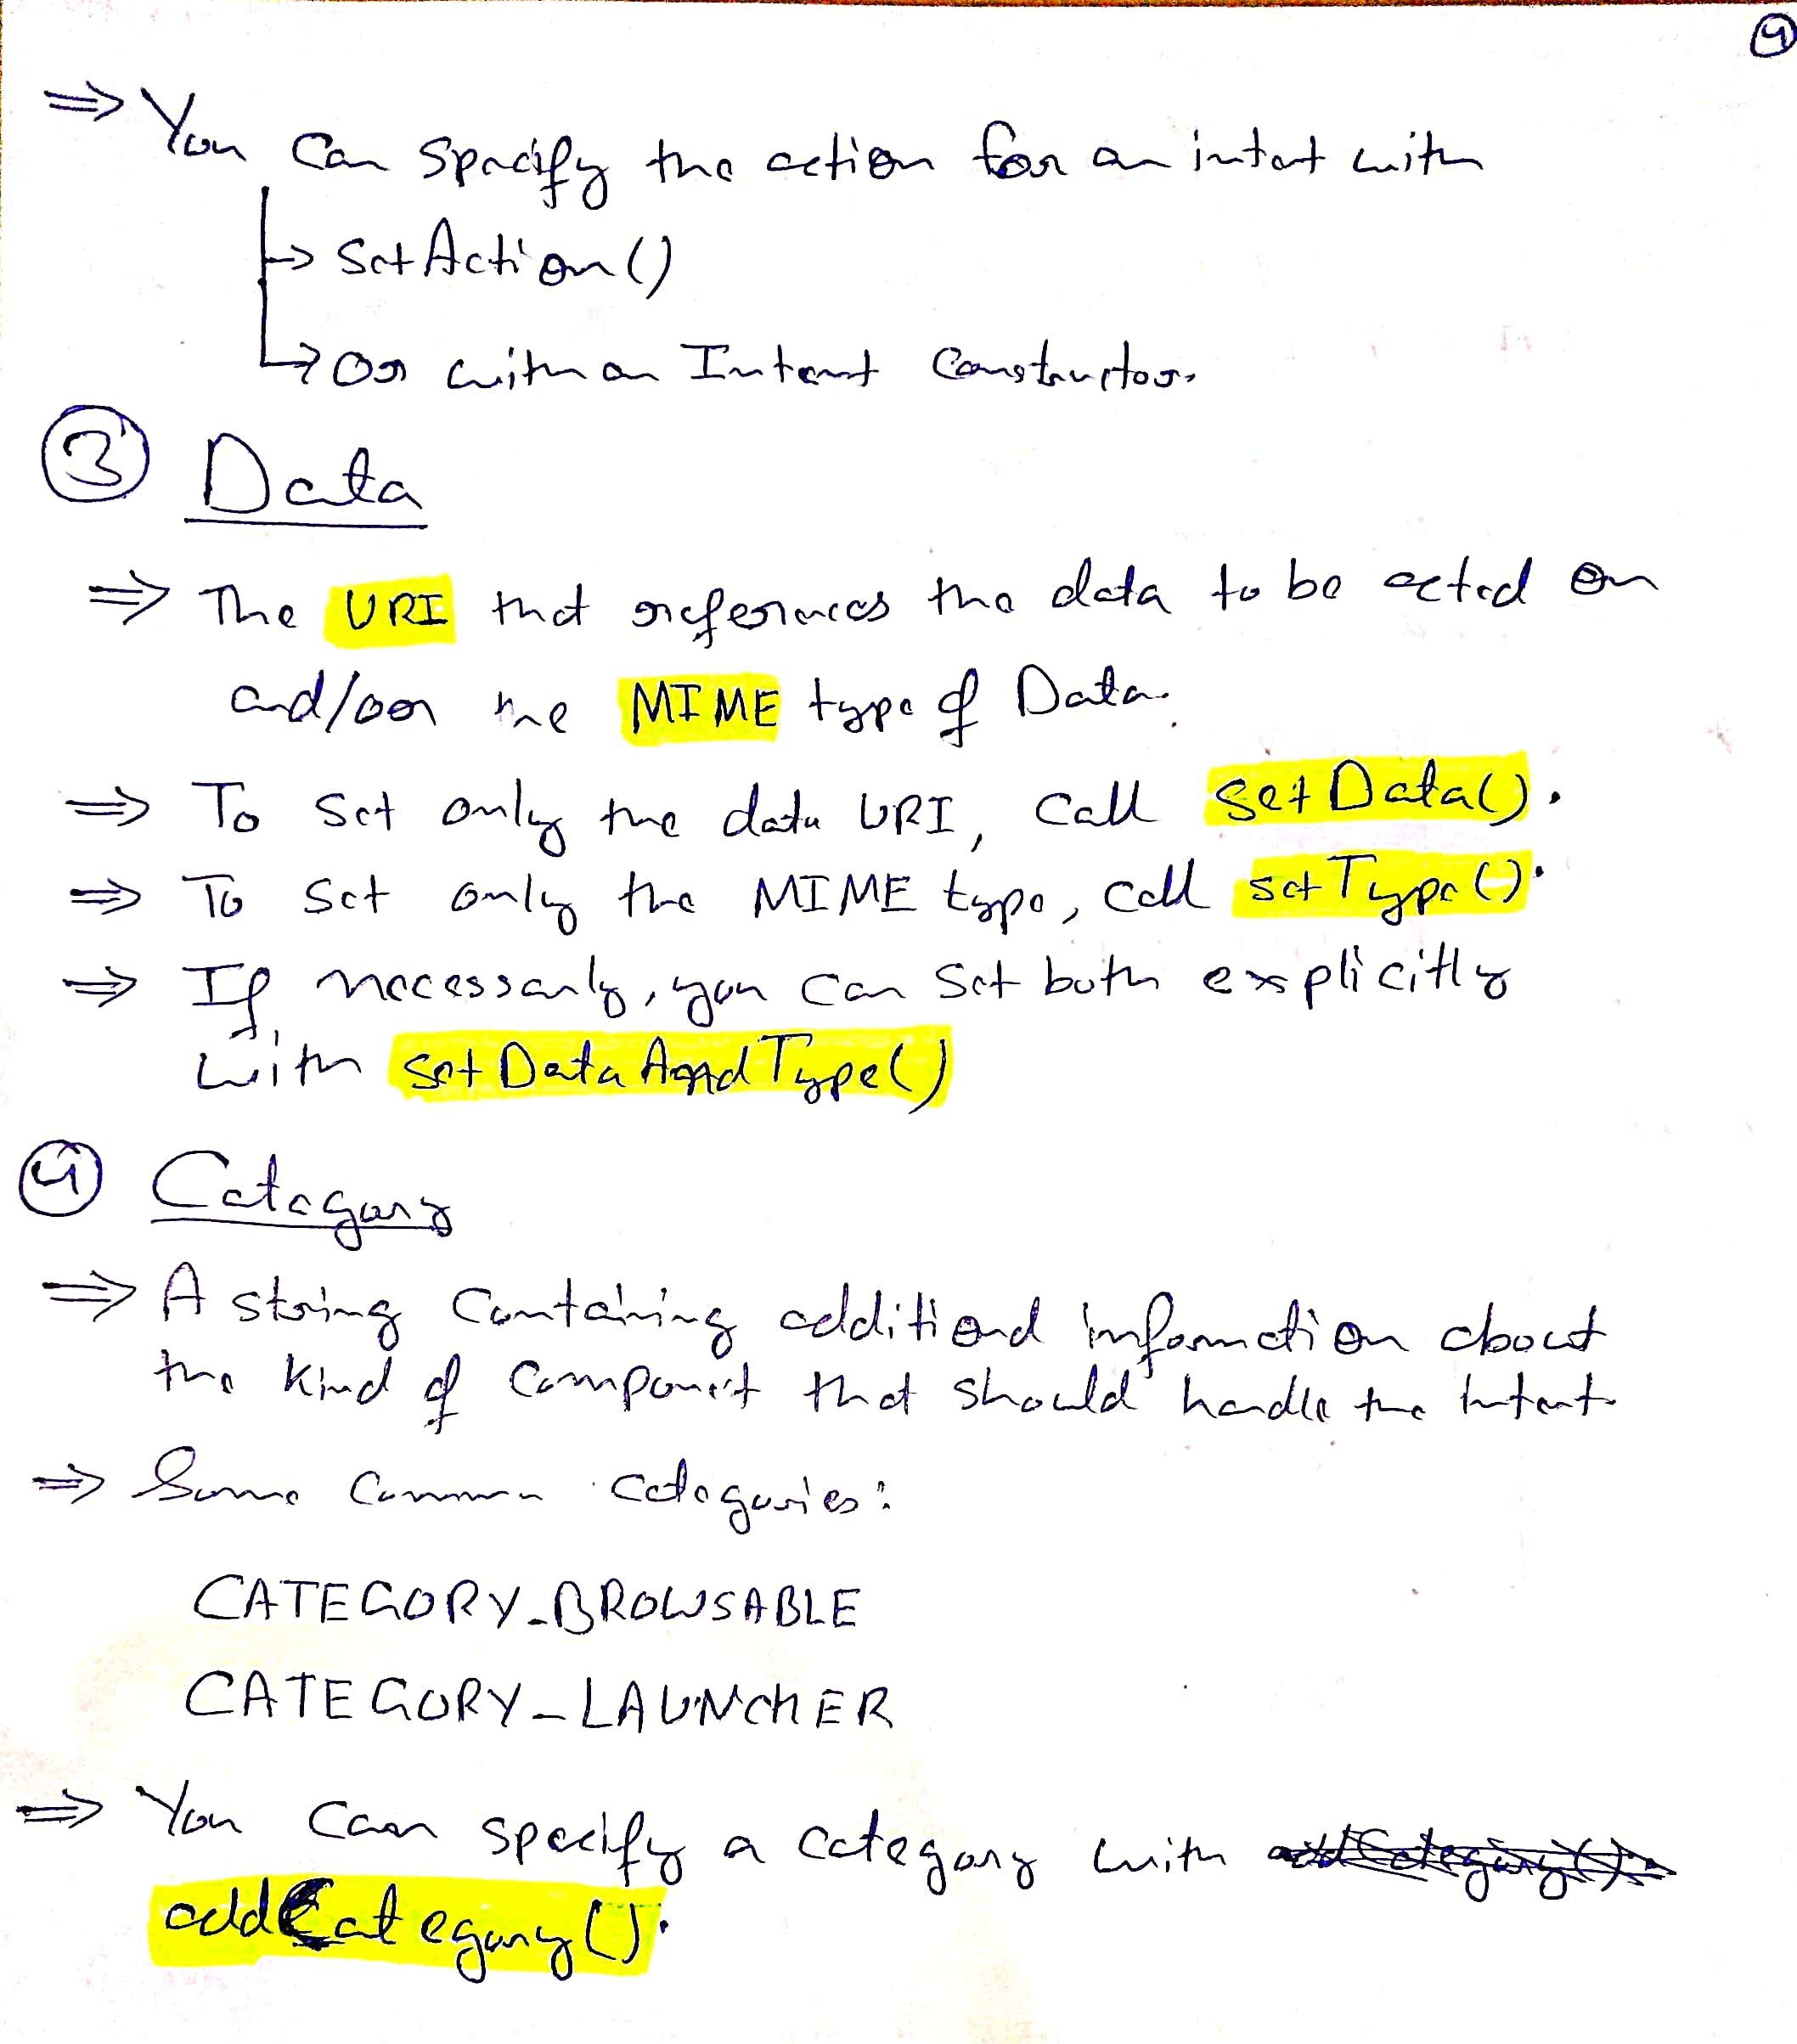 4
⇒ You can specify the action for an intent with
↳ setAction()
↳ Or with an Intent Constructor.
3 Data
⇒ The URI that references the data to be acted on
and/or the MIME type of Data.
⇒ To set only the data URI, call setData().
⇒ To set only the MIME type, call setType().
⇒ If necessarly, you can set both explicitly
with setDataAndType()
4 Category
⇒ A string containing additional information about
the kind of component that should handle the Intent.
⇒ Some common categories:
CATEGORY_BROWSABLE
CATEGORY_LAUNCHER
⇒ You can specify a category with addCategory().
addCategory().